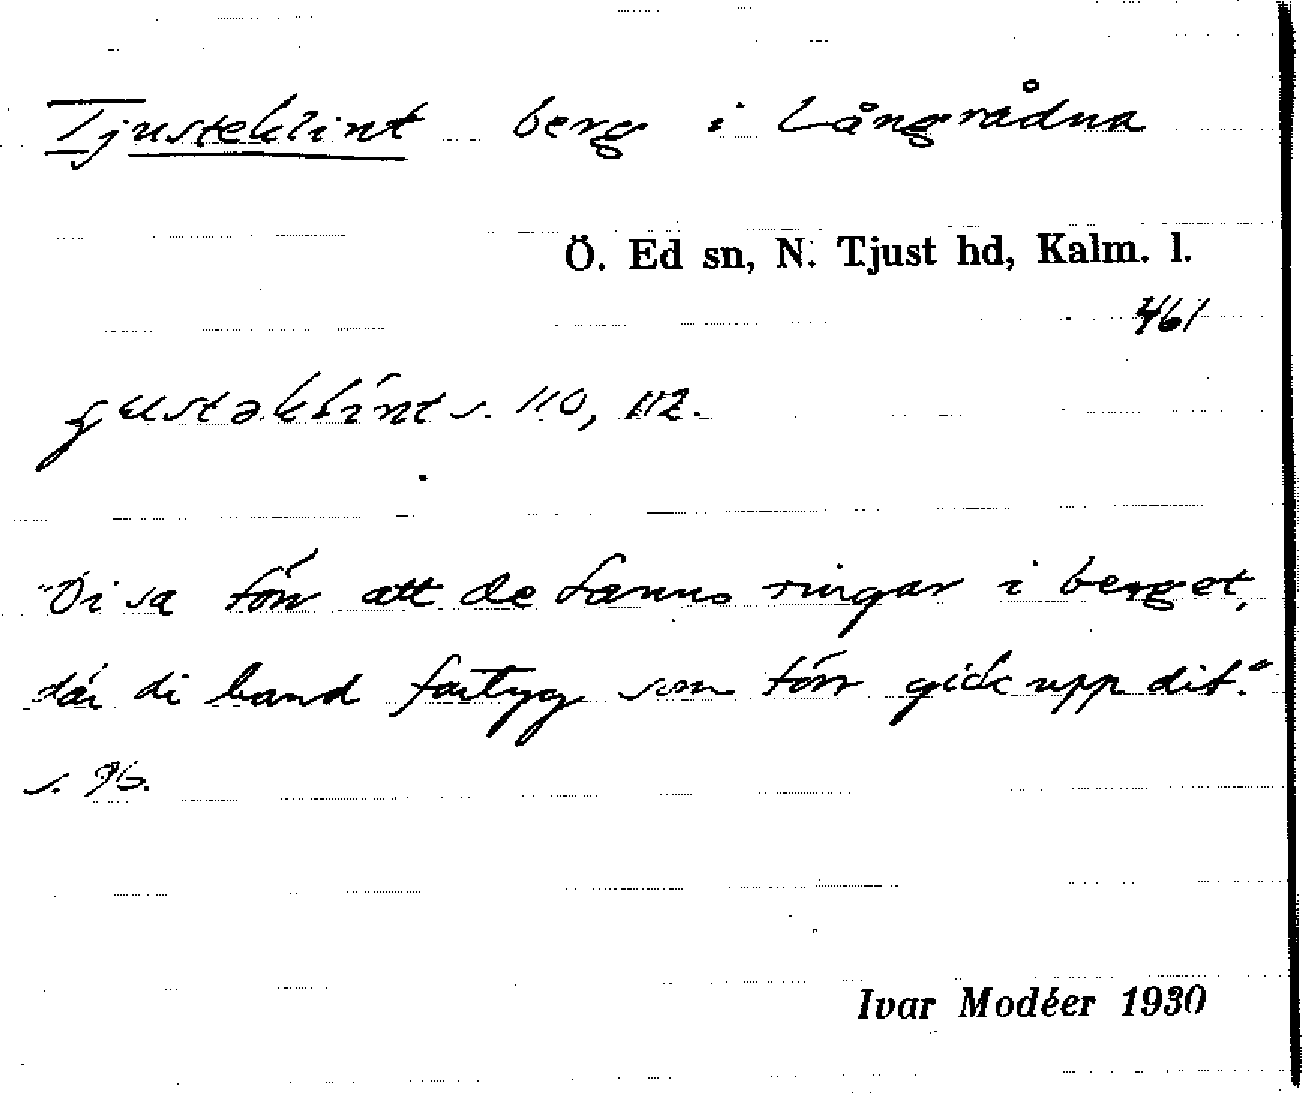 Tjusteklint berg i Långrådna
Ö. Ed sn, N. Tjust hd, Kalm. l.
461
s. 110, 112.
"Di sa förr att de fanns ringar i berget,
där di band fartyg som förr gick upp dit."
s. 96.
Ivar Modéer 1930